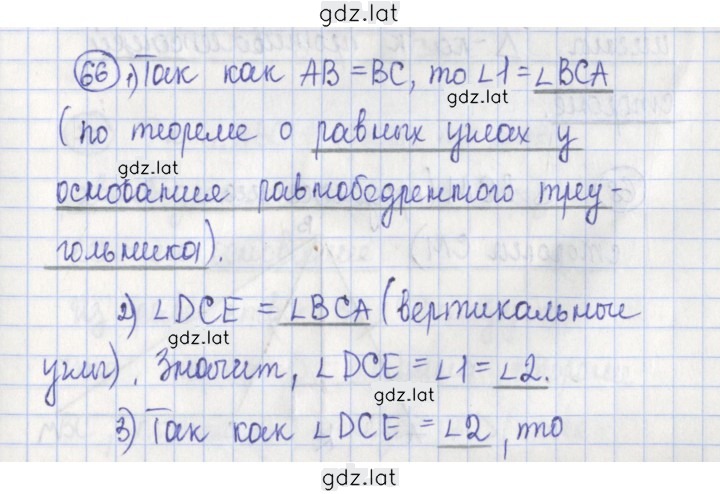 gdz.lat
66 1) Так как AB = BC, то ∠1 = ∠BCA
gdz.lat
(по теореме о равных углах у
gdz.lat
основания равнобедренного треу-
гольника).
2) ∠DCE = ∠BCA (вертикальные
gdz.lat
углы). Значит, ∠DCE = ∠1 = ∠2.
gdz.lat
3) Так как ∠DCE = ∠2, то
gdz.lat